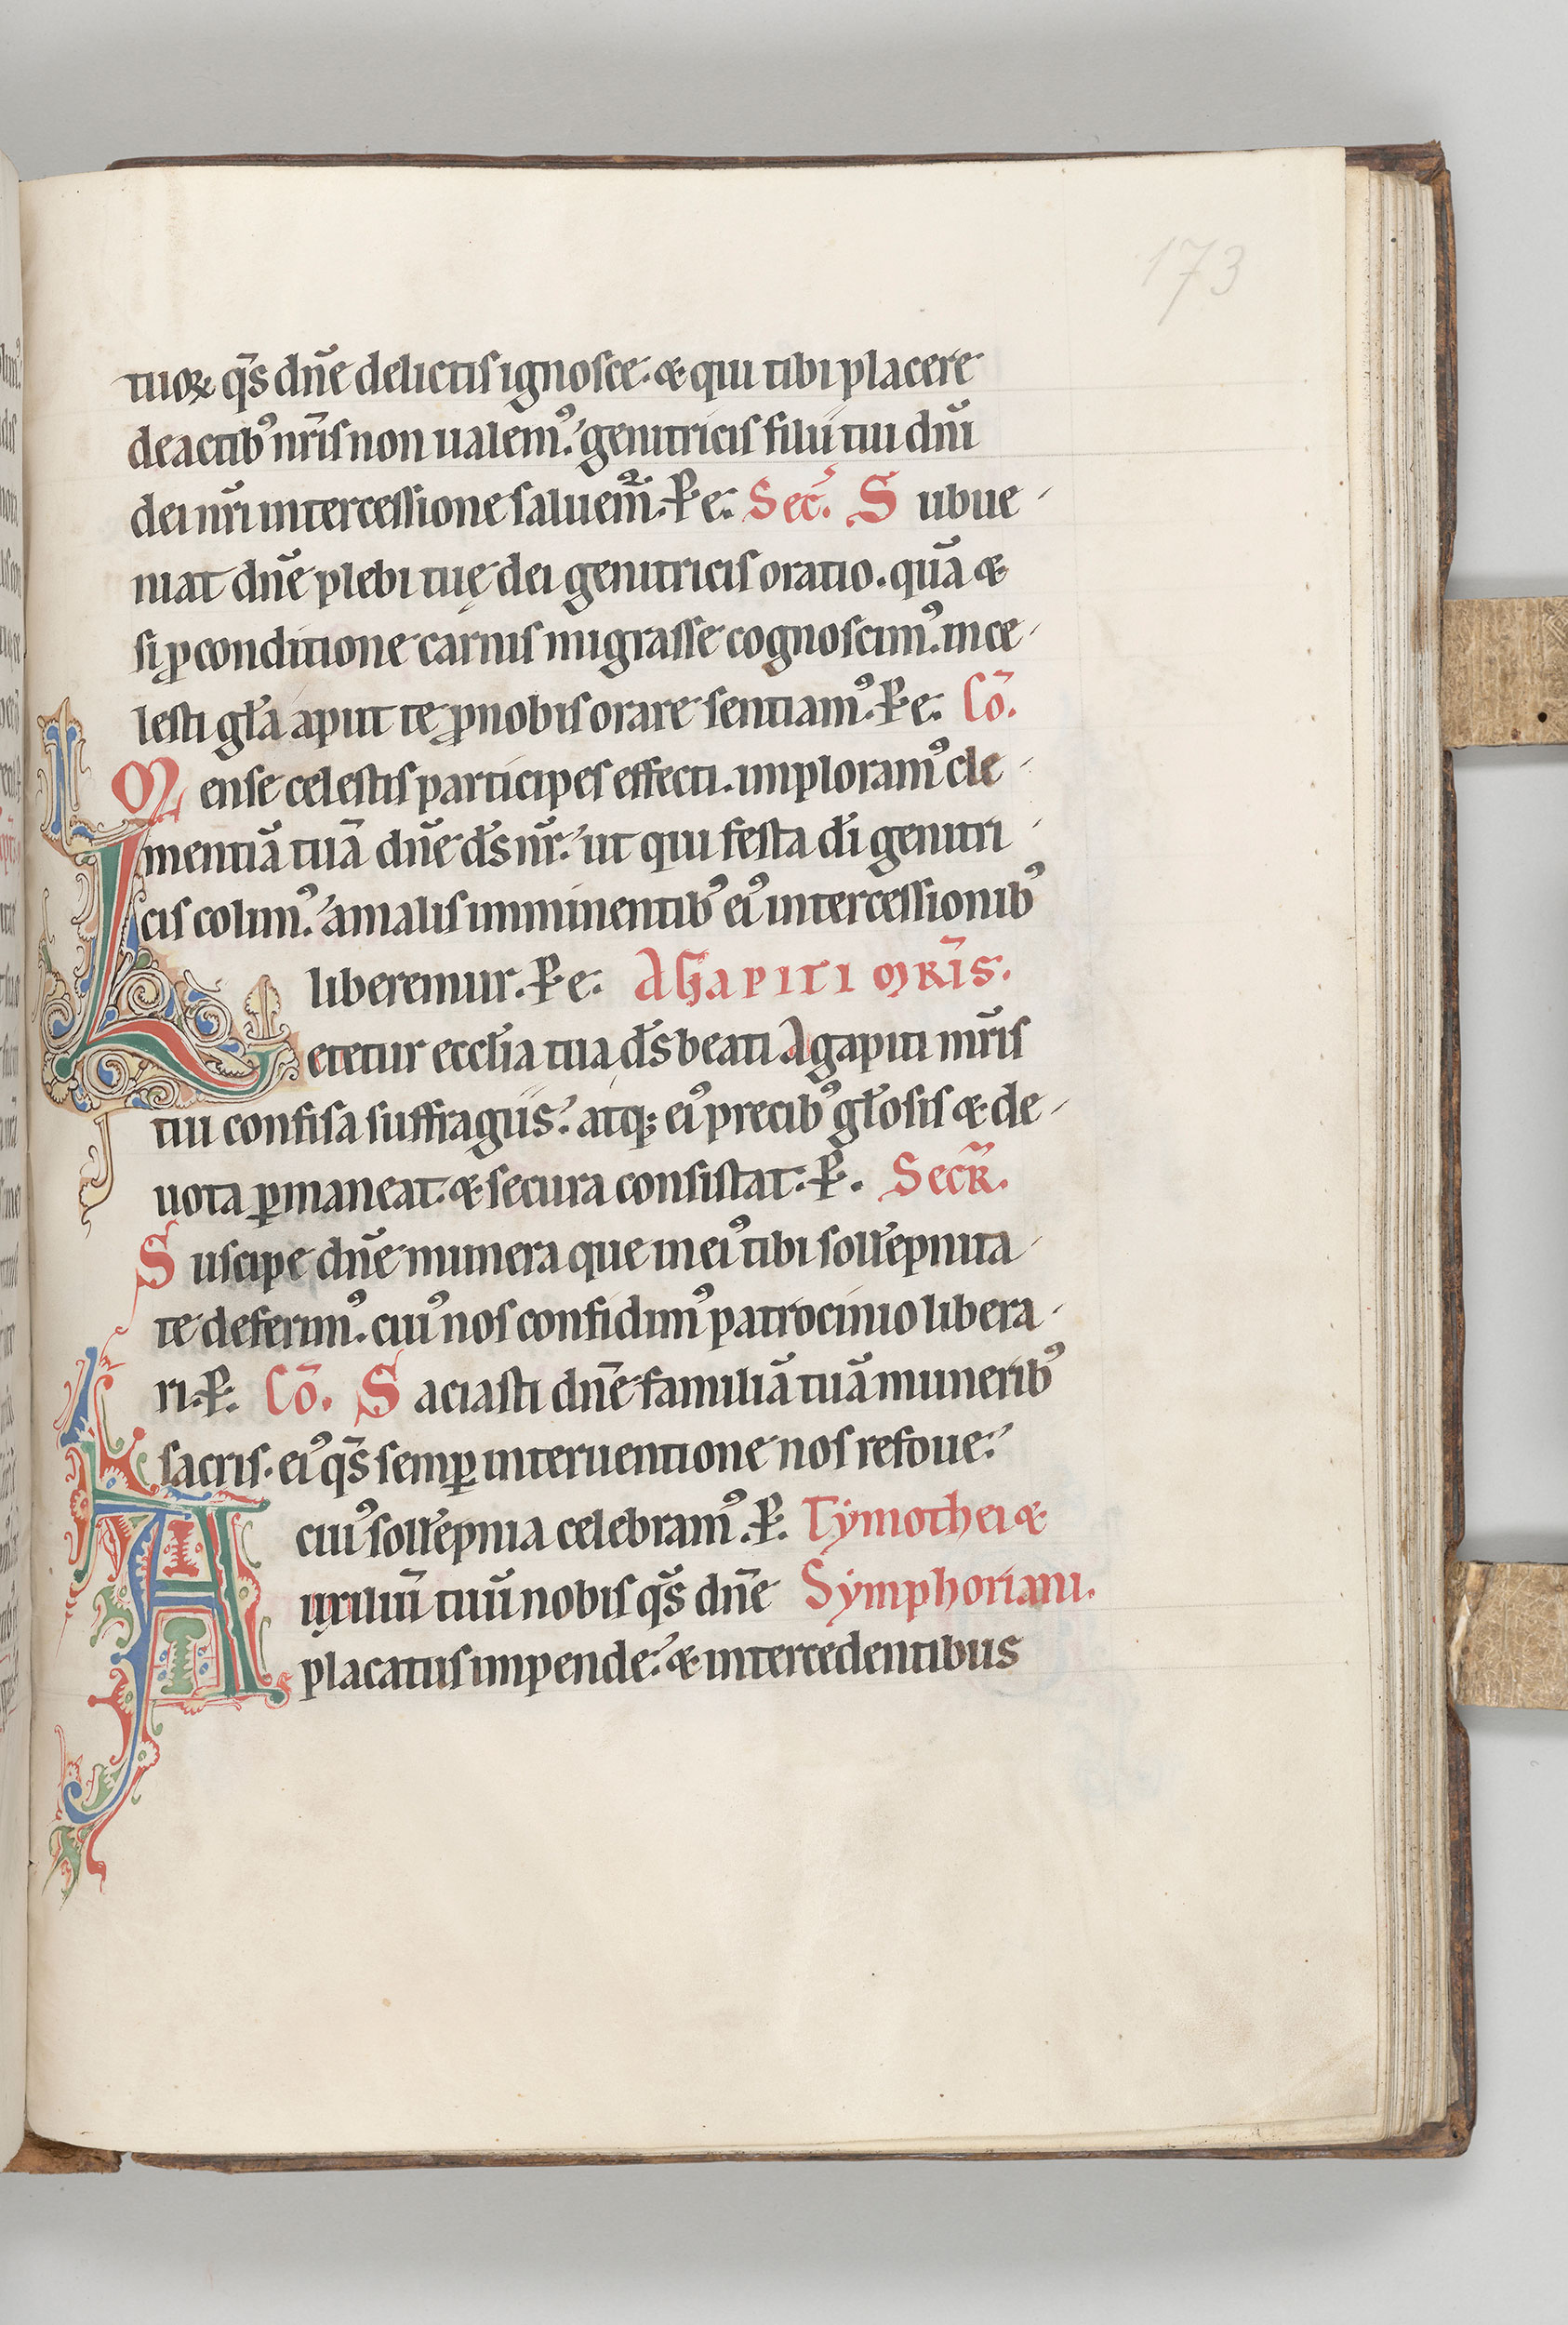 173
tuoꝝ q̄s dn̄e delictis ignosce· & qui tibi placere
de actib' nr̄is non ualem'.' genitricis filii tui dn̄i
dei nr̄i intercessione saluem̄. P̄e. Sec̄. Subue
niat dn̄e plebi tuę dei genitricis oratio. quā &
si ꝓ conditione carnis migrasse cognoscim'. in ce
lesti gl̄a aput te ꝓ nobis orare sentiam'. P̄e. Cō.
Mense celestis participes effecti. imploram' cle
mentiā tuā dn̄e ds̄ nr̄.' ut qui festa dī genitri
cis colim'.' a malis imminentib' ei' intercessionib'
liberemur. P̄e. AGAPITI MR̄IS.
Letetur eccl̄ia tua ds̄ beati Agapiti mr̄is
tui confisa suffragiis.' atq; ei' precib' gl̄osis & de
uota ꝑmaneat· & secura consistat. P̄. Secr̄.
Suscipe dn̄e munera que in ei' tibi soll̄epnita
te deferim'. cui' nos confidim' patrocinio libera
ri. P̄. Cō. Saciasti dn̄e familiā tuā munerib'
sacris· ei' q̄s semꝑ interuentione nos refoue.'
cui' soll̄epnia celebram'. P̄. Tymothei &
Auxiliū tuū nobis q̄s dn̄e Symphoriani.
placatus impende.' & intercedentibus